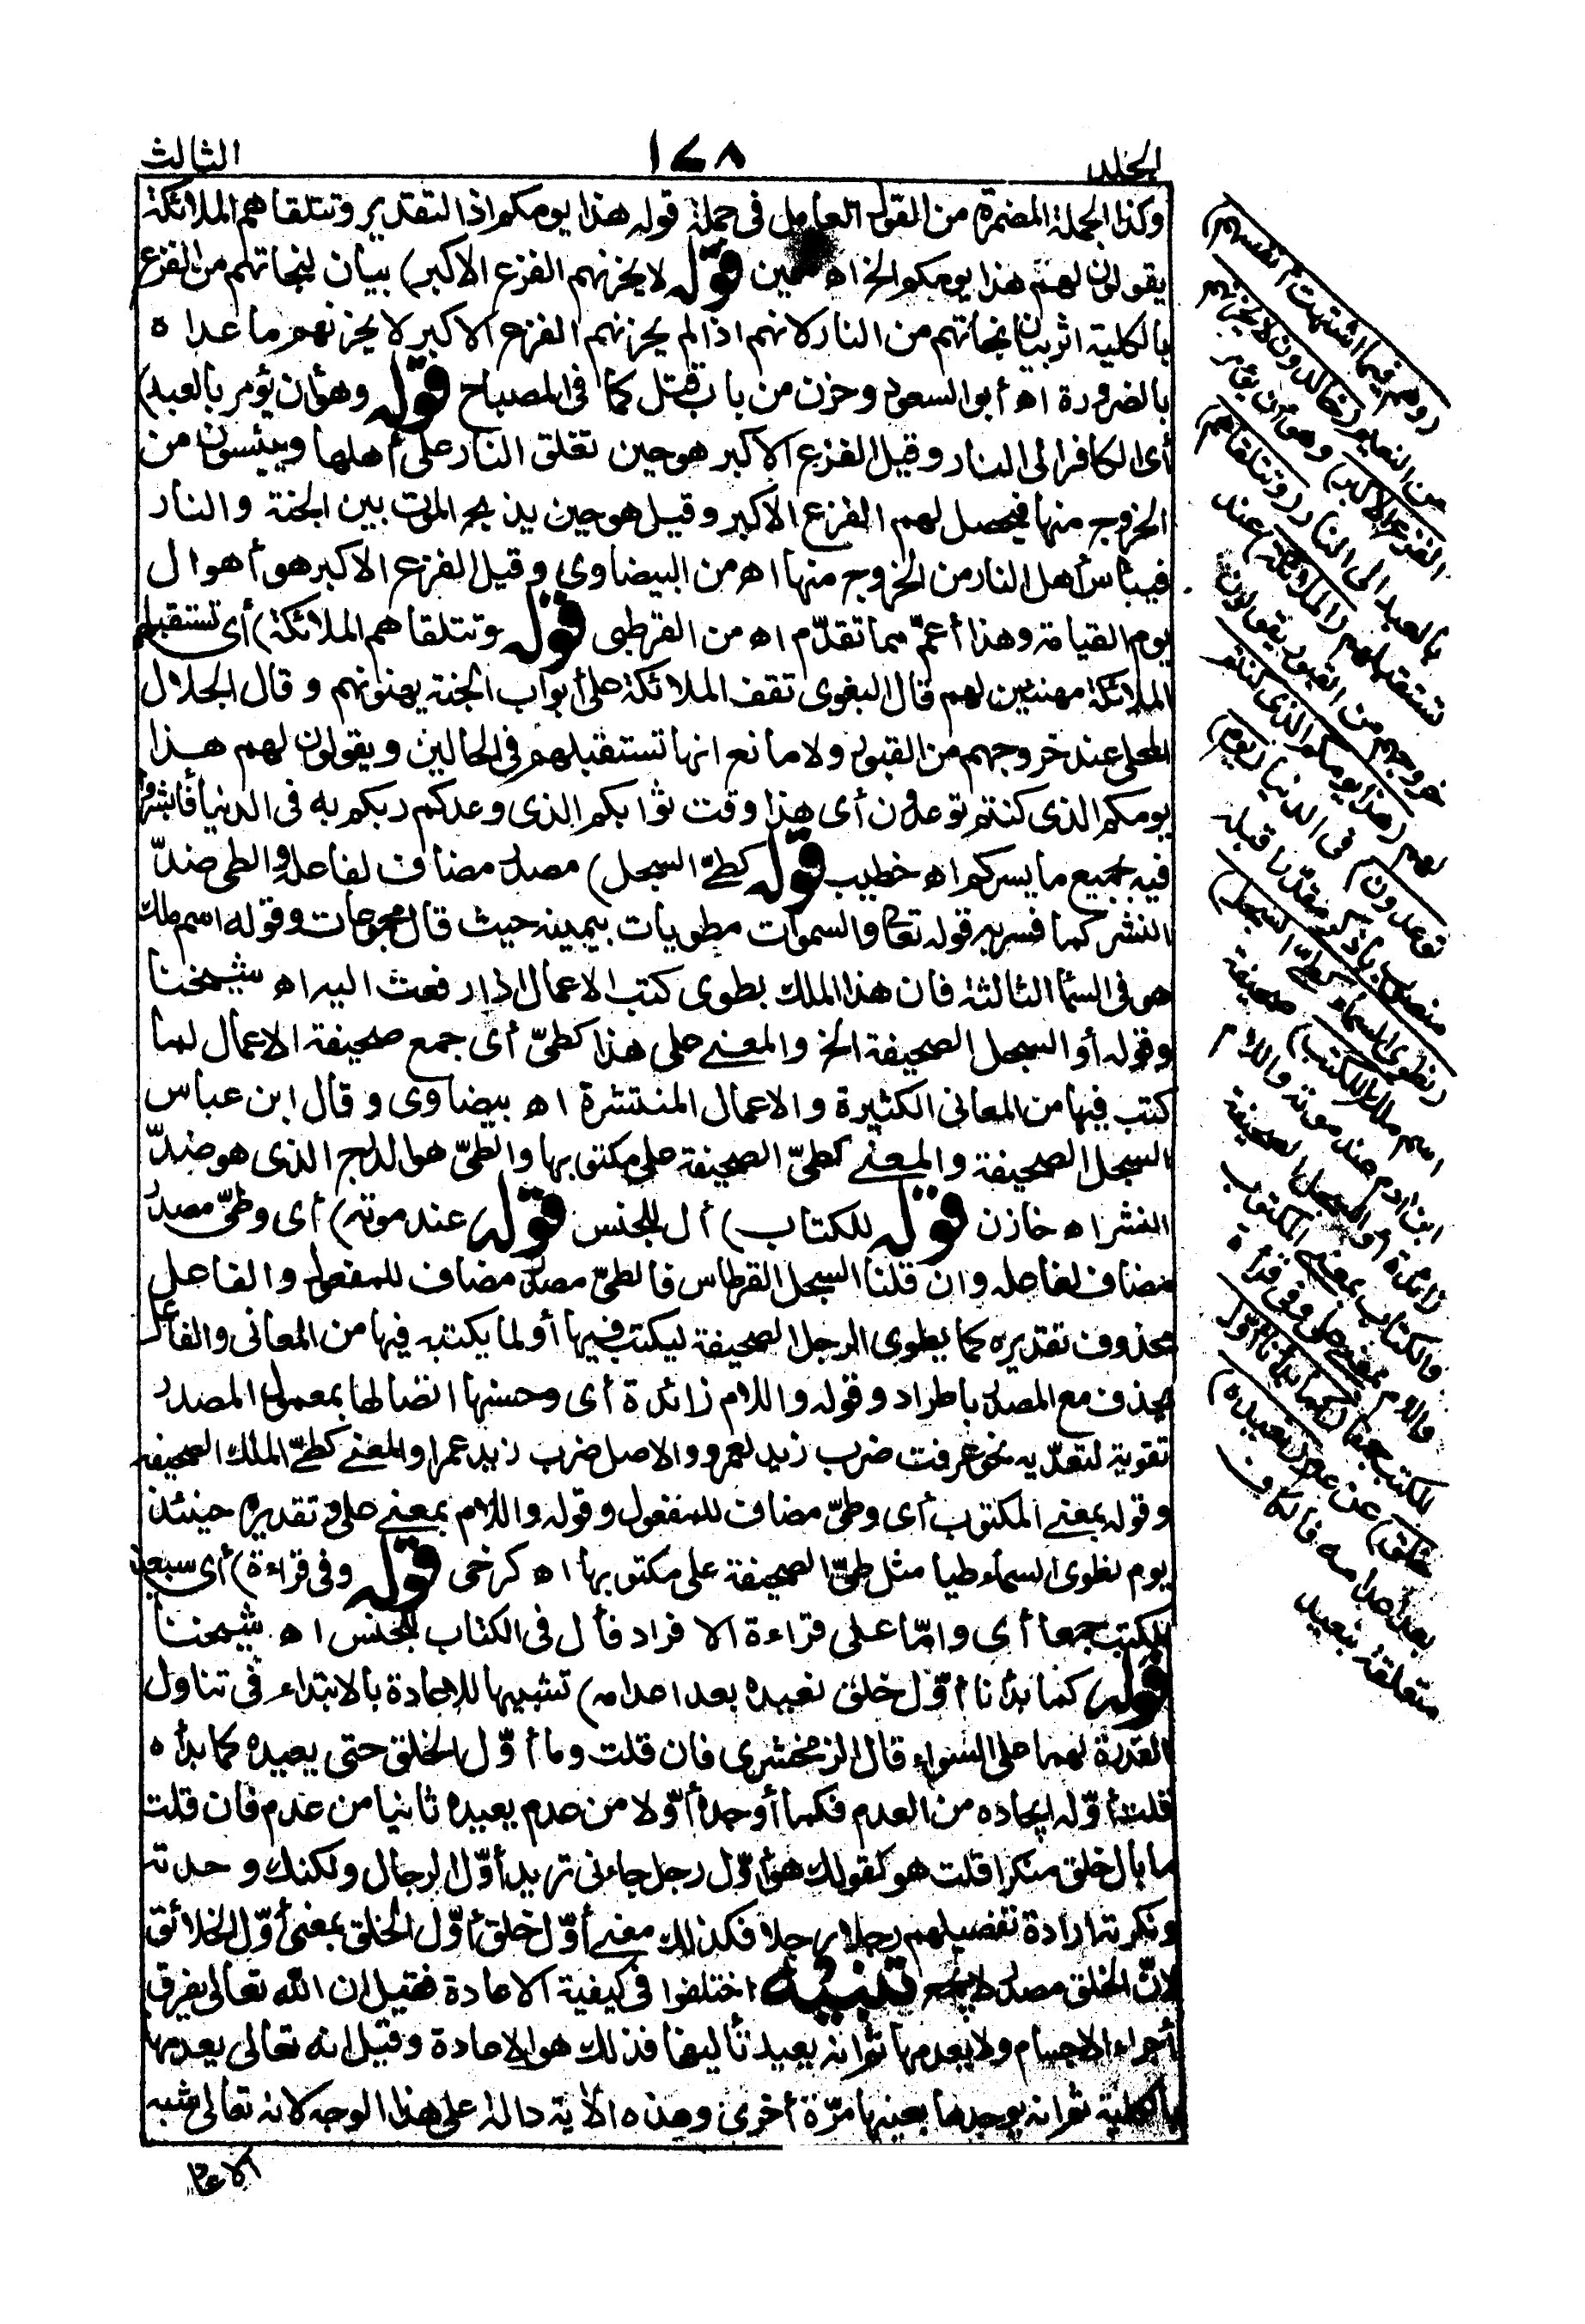 الجلد ١٤٨ الثالث
وكذا الجملة المضمرة من القول العامل فى جملة قوله هذا يومكم اذ التقدير وتتلقاهم الملائكة
يقولون لهم هذا يومكم الخ اه سمين قوله لا يحزنهم الفزع الاكبر) بيان لنجاتهم من الفزع
بالكلية اثر بيان نجاتهم من النار لانهم اذا لم يحزنهم الفزع الاكبر لا يحزنهم ما عداه
بالضرورة اه أبو السعود وحزن من باب قتل كما فى المصباح قوله وهو أن يؤمر بالعبد)
أى الكافر الى النار وقيل الفزع الاكبر هو حين تغلق النار على أهلها وييئسون من
الخروج منها فيحصل لهم الفزع الاكبر وقيل هو حين يذبح الموت بين الجنة والنار
فييأس أهل النار من الخروج منها اه من البيضاوى وقيل الفزع الاكبر هو أهوال
يوم القيامة وهذا أعمّ مما تقدّم اه من القرطبى قوله وتتلقاهم الملائكة) أى تستقبلهم
الملائكة مهنئين لهم قال البغوى تقف الملائكة على أبواب الجنة يهنونهم وقال الجلال
المحلى عند خروجهم من القبور ولا مانع انها تستقبلهم فى الحالين ويقولون لهم هذا
يومكم الذى كنتم توعدون أى هذا وقت ثوابكم الذى وعدكم ربكم به فى الدنيا فأبشروا
فيه بجميع ما يسركم اه خطيب قوله كطىّ السجل) مصدر مضاف لفاعله والطى ضدّ
النشر كما فسر به قوله تعالى والسموات مطويات بيمينه حيث قال مجموعات وقوله اسم ملك
هو فى السماء الثالثة فان هذا الملك يطوى كتب الاعمال اذا رفعت اليه اه شيخنا
وقوله أو السجل الصحيفة الخ والمعنى على هذا كطىّ أى جمع صحيفة الاعمال لما
كتب فيها من المعانى الكثيرة والاعمال المنتشرة اه بيضاوى وقال ابن عباس
السجل الصحيفة والمعنى كطىّ الصحيفة على مكتوبها والطىّ هو الدرج الذى هو ضدّ
النشر اه خازن قوله للكتاب) أل للجنس قوله عند موته) أى وطىّ مصدر
مضاف لفاعله وان قلنا السجل القرطاس فالطىّ مصدر مضاف للمفعول والفاعل
محذوف تقديره كما يطوى الرجل الصحيفة ليكتب فيها أو لما يكتبه فيها من المعانى والفاعل
يحذف مع المصدر باطراد وقوله واللام زائدة أى وحسنها اتصالها بمعمول المصدر
تقوية لتعدّيه نحو عرفت ضرب زيد لعمرو والاصل ضرب زيد عمرا والمعنى كطىّ الملك الصحيفة
وقوله بمعنى المكتوب أى وطىّ مضاف للمفعول وقوله واللام بمعنى على وتقديره حينئذ
يوم نطوى السماء طيا مثل طىّ الصحيفة على مكتوبها اه كرخى قوله وفى قراءة) أى سبعية
للكتب جمعا أى وامّا على قراءة الافراد فأل فى الكتاب للجنس اه شيخنا
قوله كما بدأنا أوّل خلق نعيده بعد اعدامه) تشبيها للاعادة بالابتداء فى تناول
القدرة لهما على السواء قال الزمخشرى فان قلت وما أوّل الخلق حتى يعيده كما بدأه
قلت أوّله ايجاده من العدم فكما أوجده أوّلا من عدم يعيده ثانيا من عدم فان قلت
ما بال خلق منكرا قلت هو كقولك هو أوّل رجل جاءنى تريد أوّل الرجال ولكنك وحدته
ونكرته ارادة تفصيلهم رجلا رجلا فكذلك معنى أوّل خلق أوّل الخلق بمعنى أوّل الخلائق
لانّ الخلق مصدر لا يجمع تنبيه اختلفوا فى كيفية الاعادة فقيل ان الله تعالى يفرق
أجزاء الاجسام ولا يعدمها ثم انه يعيد تأليفها فذلك هو الاعادة وقيل انه تعالى يعدمها
بالكلية ثم انه يوجدها بعينها مرّة أخرى وهذه الآية دالة على هذا الوجه لانه تعالى شبه
الاعا
(وهم فيما اشتهت أنفسهم)
من النعيم (خالدون لا يحزنهم
الفزع الاكبر) وهو أن يؤمر
بالعبد الى النار (وتتلقاهم)
تستقبلهم (الملائكة) عند
خروجهم من القبور يقولون
لهم (هذا يومكم الذى كنتم
توعدون) فى الدنيا (يوم)
منصوب باذكر مقدّرا قبله
(نطوى السماء كطىّ السجل)
اسم ملك (للكتب) صحيفة
ابن ادم عند موته واللام
زائدة أو السجل الصحيفة
والكتاب بمعنى المكتوب
واللام بمعنى على وفى قراءة
للكتب جمعا (كما بدأنا أوّل
خلق) عن عدم (نعيده)
بعد اعدامه فالكاف
متعلقة بنعيد